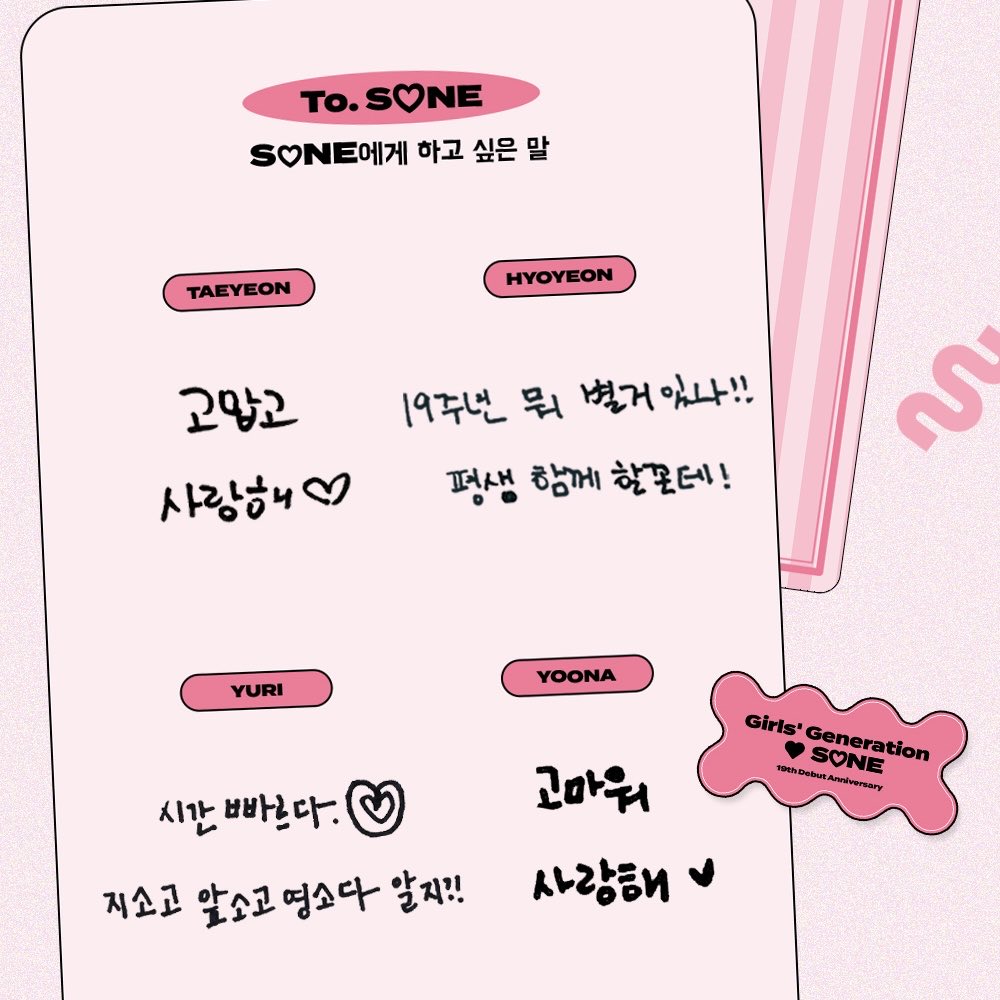 To. S♡NE
S♡NE에게 하고 싶은 말
TAEYEON
고맙고
사랑해♡
HYOYEON
19주년 뭐 별거있나!!
평생 함께 할껀데!
YURI
시간 빠르다.
지소고 앞소고 영소다 알지?!
YOONA
고마워
사랑해 ♥
Girls' Generation
♥ S♡NE
19th Debut Anniversary